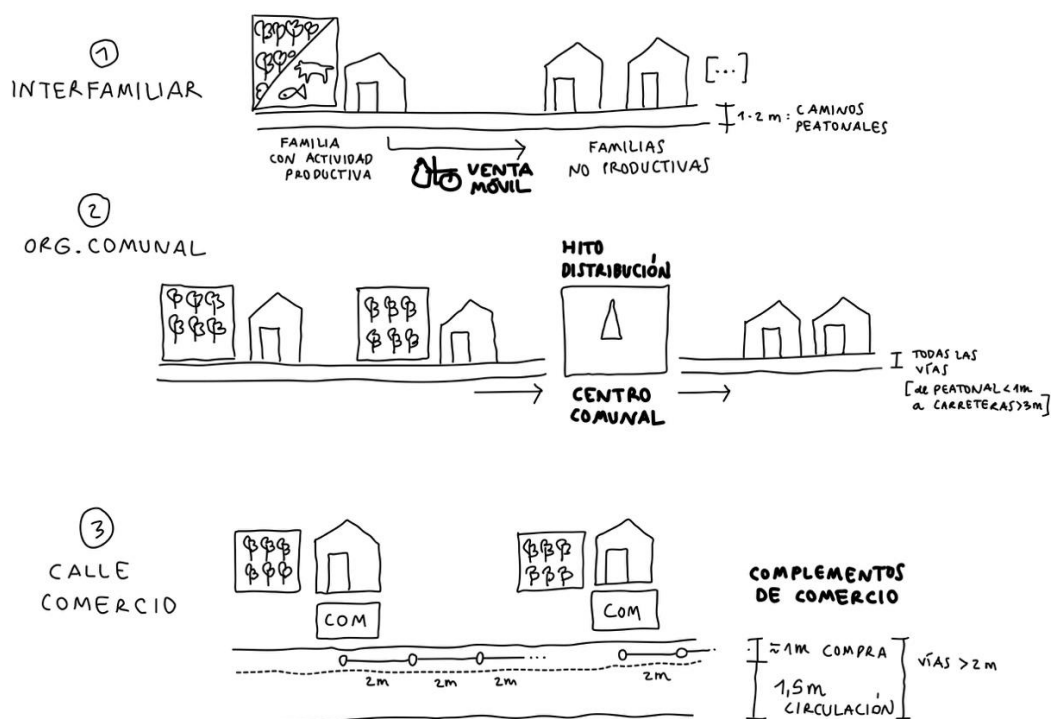 1
INTERFAMILIAR
[...]
1-2 m: CAMINOS
PEATONALES
FAMILIA
CON ACTIVIDAD
PRODUCTIVA
VENTA
MÓVIL
FAMILIAS
NO PRODUCTIVAS
2
ORG. COMUNAL
HITO
DISTRIBUCIÓN
CENTRO
COMUNAL
TODAS LAS
VÍAS
[de PEATONAL<1m
a CARRETERAS>3m]
3
CALLE
COMERCIO
COM
COM
2m
2m
2m
...
2m
...
COMPLEMENTOS
DE COMERCIO
≈1m COMPRA
1,5m
CIRCULACIÓN
VÍAS >2m